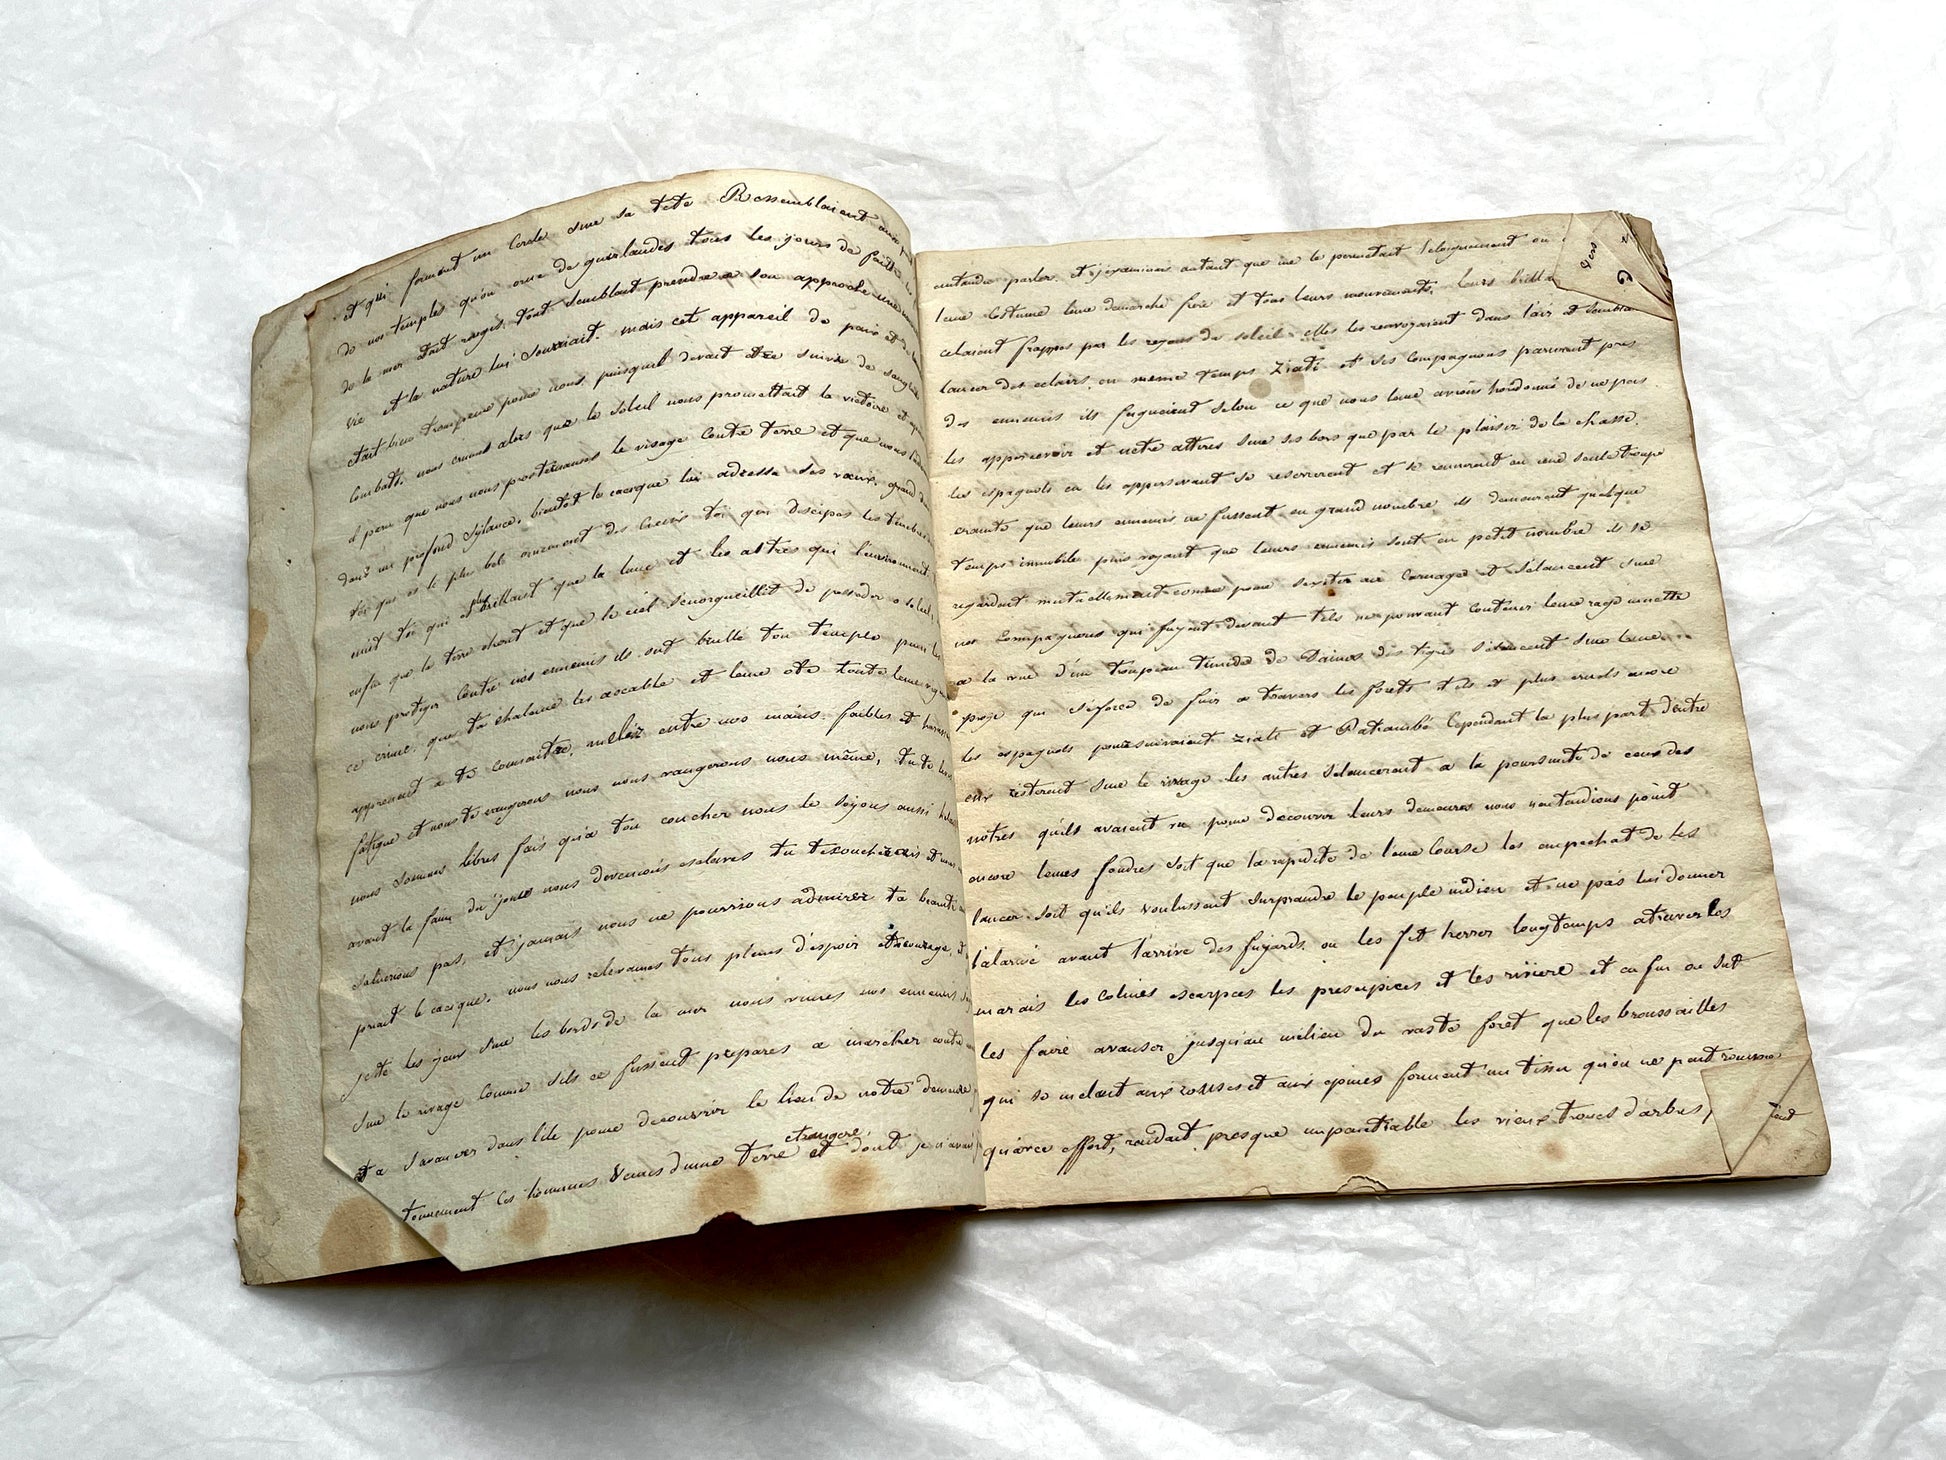 et qui forment un cercle sur sa tete Ressemblaient aux
de nos temples qu'on orne de guirlandes tous les jours de
de la mer etait rougis, tout semblait prendre a son approche une
vie et la nature lui souriait. mais cet appareil de paix et de
etait bien trompeuse pour nous, puisquil devait etre suivie de
combatts. nous crumes alors que le soleil nous promettait la victoire et
a peine que nous nous prosternames le visage contre terre et que nous
dans un profond sylance, bientot le cacique lui adressa ses vœux, grand
toi qui es le plus bele ornement des cieux toi qui discipes les tenebres
nuit toi qui es plus brillant que la lune et les astres qui l'environnent
enfin que la terre cherit et que le ciel senorgueillit de posseder o soleil,
nous proteger contre nos ennemis ils ont brullé ton temple punis les
ce crime. que ta chaleur les accable et leur ote toute leur
apprenent a te connoitre, mellez entre nos mains faibles et
fatigue et nous te vangerons nous nous vangerons nous même,
nous sommes libres fais qu'a ton coucher nous le soyons aussi
avant la fin du jour nous devenions esclaves tu te
saluerions pas, et jamais nous ne pourrions admirer ta beauté
priait le cacique. nous nous relevames tous pleins d'espoir et
jette les yeux sur les bords de la mer nous vimes nos ennemis
sur le rivage comme sils ce fussent prepares a marcher contre
et a savancer dans l'ile pour decouvrir le lieu de notre demeure
etrangere,
tonnement ces hommes venus dune terre et dont je n'avais
entendre parler. et j'examinai autant que me le permettait l'eloignement
leur costume leur demarche fiere et tous leurs mouvements, leurs
etaient frappes par les rayons du soleil elles les renvoyaient dans l'air et
lancer des eclairs, en meme temps Ziati et ses compagnons parurent pres
des ennemis ils feignoient selon ce que nous leur avions hordonné de ne pas
les appercevoir et netre attires sur ses bors que par le plaisir de la chasse.
les espagnols en les appersevant se reserrerent et se reunirent en une seule troupe
crainte que leurs ennemis ne fussent en grand nombre ils demeurent quelque
temps immobile puis voyant que leurs ennemis sont en petit nombre ils se
regardent mutuellement comme pour sexciter au carnage et s'elancent sur
nos compagnons qui fuyent devant tels ne pouvant contenir leur rage
a la vue d'un troupeau timide de Daines des tigres s'elancent sur leur
proye qui s'eforce de fuir a travers les forets tels et plus cruels encore
les espagnols poursuivaient Ziati et Patrambé cependant la plus part d'entre
eux resterent sur le rivage les autres selancerent a la poursuite de ceux des
notres qu'ils avaient vu pour decouvrir leurs demeures nous nentendions point
encore leurs foudres soit que la rapidite de leur course les empechat de les
lancer soit qu'ils voulussent surprendre le peuple indien et ne pas lui donner
l'alarme avant l'arrive des fuyards. on les fit herrer longtemps atravers les
marais les colines escarpees les presipices et les riviere et enfin on sut
les faire avanser jusqu'au milieu du vaste foret que les broussailles
qui se melent aux ronses et aux epines forment un tissu qu'on ne peut rompre
qu'avec effort, rendait presque impenetrable les vieux troncs d'arbres,